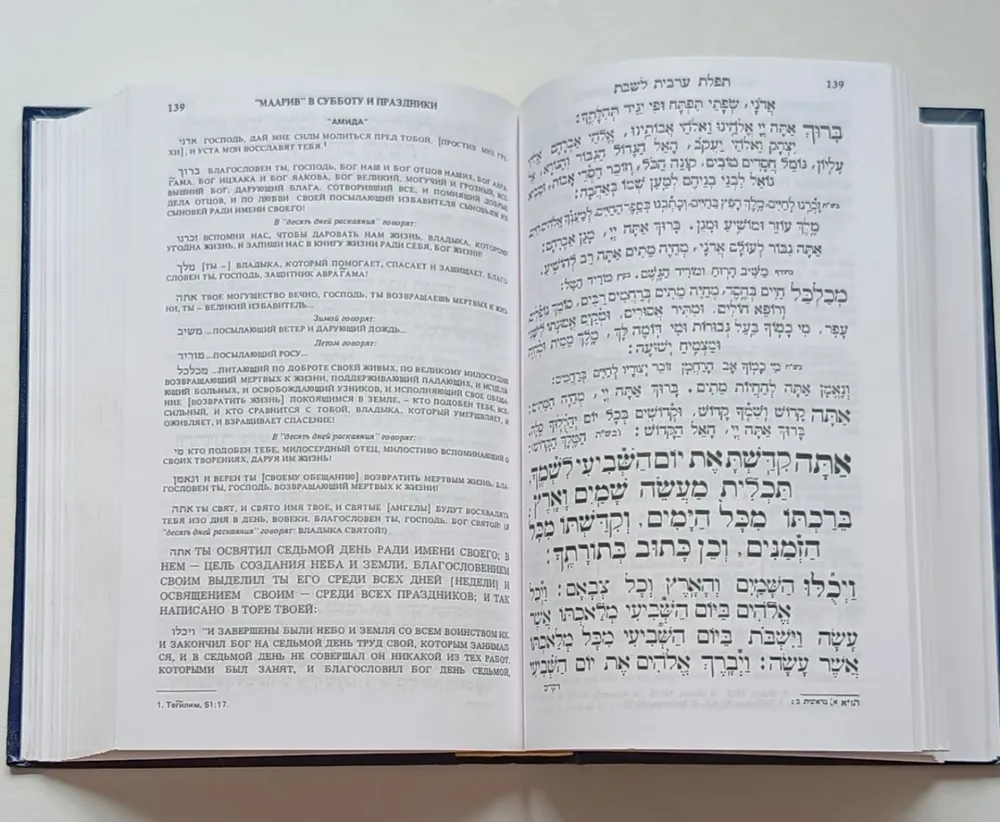 139 "МААРИВ" В СУББОТУ И ПРАЗДНИКИ
"АМИДА"
אדני ГОСПОДЬ, ДАЙ МНЕ СИЛЫ МОЛИТЬСЯ ПРЕД ТОБОЙ, [ПРОСТИВ МНЕ ГРЕ-
ХИ], И УСТА МОИ ВОССЛАВЯТ ТЕБЯ.¹
ברוך БЛАГОСЛОВЕН ТЫ, ГОСПОДЬ, БОГ НАШ И БОГ ОТЦОВ НАШИХ, БОГ АВРА-
ГАМА, БОГ ИЦХАКА И БОГ ЯАКОВА, БОГ ВЕЛИКИЙ, МОГУЧИЙ И ГРОЗНЫЙ, ВСЕ-
ВЫШНИЙ БОГ, ДАРУЮЩИЙ БЛАГА, СОТВОРИВШИЙ ВСЕ, И ПОМНЯЩИЙ ДОБРЫЕ
ДЕЛА ОТЦОВ, И ПО ЛЮБВИ СВОЕЙ ПОСЫЛАЮЩИЙ ИЗБАВИТЕЛЯ СЫНОВЬЯМ ИХ
СЫНОВЕЙ РАДИ ИМЕНИ СВОЕГО!
В "десять дней раскаяния" говорят:
זכרנו! ВСПОМНИ НАС, ЧТОБЫ ДАРОВАТЬ НАМ ЖИЗНЬ, ВЛАДЫКА, КОТОРОМУ
УГОДНА ЖИЗНЬ, И ЗАПИШИ НАС В КНИГУ ЖИЗНИ РАДИ СЕБЯ, БОГ ЖИЗНИ!
מלך [ТЫ –] ВЛАДЫКА, КОТОРЫЙ ПОМОГАЕТ, СПАСАЕТ И ЗАЩИЩАЕТ. БЛАГО-
СЛОВЕН ТЫ, ГОСПОДЬ, ЗАЩИТНИК АВРАГАМА!
אתה ТВОЕ МОГУЩЕСТВО ВЕЧНО, ГОСПОДЬ, ТЫ ВОЗВРАЩАЕШЬ МЕРТВЫХ К ЖИЗ-
НИ, ТЫ – ВЕЛИКИЙ ИЗБАВИТЕЛЬ...
Зимой говорят:
משיב ...ПОСЫЛАЮЩИЙ ВЕТЕР И ДАРУЮЩИЙ ДОЖДЬ...
Летом говорят:
מוריד ...ПОСЫЛАЮЩИЙ РОСУ...
מכלכל ...ПИТАЮЩИЙ ПО ДОБРОТЕ СВОЕЙ ЖИВЫХ, ПО ВЕЛИКОМУ МИЛОСЕРДИЮ
ВОЗВРАЩАЮЩИЙ МЕРТВЫХ К ЖИЗНИ, ПОДДЕРЖИВАЮЩИЙ ПАДАЮЩИХ, И ИСЦЕЛЯ-
ЮЩИЙ БОЛЬНЫХ, И ОСВОБОЖДАЮЩИЙ УЗНИКОВ, И ИСПОЛНЯЮЩИЙ СВОЕ ОБЕЩА-
НИЕ [ВОЗВРАТИТЬ ЖИЗНЬ] ПОКОЯЩИМСЯ В ЗЕМЛЕ, – КТО ПОДОБЕН ТЕБЕ, ВСЕ-
СИЛЬНЫЙ, И КТО СРАВНИТСЯ С ТОБОЙ, ВЛАДЫКА, КОТОРЫЙ УМЕРЩВЛЯЕТ, И
ОЖИВЛЯЕТ, И ВЗРАЩИВАЕТ СПАСЕНИЕ!
В "десять дней раскаяния" говорят:
מי КТО ПОДОБЕН ТЕБЕ, МИЛОСЕРДНЫЙ ОТЕЦ, МИЛОСТИВО ВСПОМИНАЮЩИЙ О
СВОИХ ТВОРЕНИЯХ, ДАРУЯ ИМ ЖИЗНЬ!
ונאמן И ВЕРЕН ТЫ [СВОЕМУ ОБЕЩАНИЮ] ВОЗВРАТИТЬ МЕРТВЫМ ЖИЗНЬ. БЛА-
ГОСЛОВЕН ТЫ, ГОСПОДЬ, ВОЗВРАЩАЮЩИЙ МЕРТВЫХ К ЖИЗНИ!
אתה ТЫ СВЯТ, И СВЯТО ИМЯ ТВОЕ, И СВЯТЫЕ [АНГЕЛЫ] БУДУТ ВОСХВАЛЯТЬ
ТЕБЯ ИЗО ДНЯ В ДЕНЬ, ВОВЕКИ. БЛАГОСЛОВЕН ТЫ, ГОСПОДЬ, БОГ СВЯТОЙ! (В
"десять дней раскаяния" говорят: ВЛАДЫКА СВЯТОЙ!)
אתה ТЫ ОСВЯТИЛ СЕДЬМОЙ ДЕНЬ РАДИ ИМЕНИ СВОЕГО; В
НЕМ — ЦЕЛЬ СОЗДАНИЯ НЕБА И ЗЕМЛИ, БЛАГОСЛОВЕНИЕМ
СВОИМ ВЫДЕЛИЛ ТЫ ЕГО СРЕДИ ВСЕХ ДНЕЙ [НЕДЕЛИ] И
ОСВЯЩЕНИЕМ СВОИМ — СРЕДИ ВСЕХ ПРАЗДНИКОВ; И ТАК
НАПИСАНО В ТОРЕ ТВОЕЙ:
ויכלו "И ЗАВЕРШЕНЫ БЫЛИ НЕБО И ЗЕМЛЯ СО ВСЕМ ВОИНСТВОМ ИХ.
И ЗАКОНЧИЛ БОГ НА СЕДЬМОЙ ДЕНЬ ТРУД СВОЙ, КОТОРЫМ ЗАНИМАЛ-
СЯ, И В СЕДЬМОЙ ДЕНЬ НЕ СОВЕРШАЛ ОН НИКАКОЙ ИЗ ТЕХ РАБОТ,
КОТОРЫМИ БЫЛ ЗАНЯТ, И БЛАГОСЛОВИЛ БОГ ДЕНЬ СЕДЬМОЙ,
1. Тегилим, 51:17.
תפלת ערבית לשבת 139
אֲדֹנָי, שְׂפָתַי תִּפְתָּח וּפִי יַגִּיד תְּהִלָּתֶךָ:
בָּרוּךְ אַתָּה יְיָ אֱלֹהֵינוּ וֵאלֹהֵי אֲבוֹתֵינוּ, אֱלֹהֵי אַבְרָהָם אֱלֹהֵי
יִצְחָק וֵאלֹהֵי יַעֲקֹב, הָאֵל הַגָּדוֹל הַגִּבּוֹר וְהַנּוֹרָא, אֵל
עֶלְיוֹן, גּוֹמֵל חֲסָדִים טוֹבִים, קוֹנֵה הַכֹּל, וְזוֹכֵר חַסְדֵי אָבוֹת, וּמֵבִיא
גוֹאֵל לִבְנֵי בְנֵיהֶם לְמַעַן שְׁמוֹ בְּאַהֲבָה:
בשי"ת זָכְרֵנוּ לְחַיִּים, מֶלֶךְ חָפֵץ בַּחַיִּים, וְכָתְבֵנוּ בְּסֵפֶר הַחַיִּים, לְמַעַנְךָ אֱלֹהִים חַיִּים.
מֶלֶךְ עוֹזֵר וּמוֹשִׁיעַ וּמָגֵן. בָּרוּךְ אַתָּה יְיָ, מָגֵן אַבְרָהָם:
אַתָּה גִבּוֹר לְעוֹלָם אֲדֹנָי, מְחַיֶּה מֵתִים אַתָּה רַב לְהוֹשִׁיעַ.
בחורף מַשִּׁיב הָרוּחַ וּמוֹרִיד הַגֶּשֶׁם. בקיץ מוֹרִיד הַטָּל:
מְכַלְכֵּל חַיִּים בְּחֶסֶד, מְחַיֶּה מֵתִים בְּרַחֲמִים רַבִּים, סוֹמֵךְ נוֹפְלִים,
וְרוֹפֵא חוֹלִים, וּמַתִּיר אֲסוּרִים, וּמְקַיֵּם אֱמוּנָתוֹ לִישֵׁנֵי
עָפָר, מִי כָמוֹךָ בַּעַל גְּבוּרוֹת וּמִי דּוֹמֶה לָּךְ, מֶלֶךְ מֵמִית וּמְחַיֶּה
וּמַצְמִיחַ יְשׁוּעָה:
בשי"ת מִי כָמוֹךָ אָב הָרַחֲמָן זוֹכֵר יְצוּרָיו לְחַיִּים בְּרַחֲמִים:
וְנֶאֱמָן אַתָּה לְהַחֲיוֹת מֵתִים. בָּרוּךְ אַתָּה יְיָ, מְחַיֵּה הַמֵּתִים:
אַתָּה קָדוֹשׁ וְשִׁמְךָ קָדוֹשׁ, וּקְדוֹשִׁים בְּכָל יוֹם יְהַלְלוּךָ סֶּלָה.
בָּרוּךְ אַתָּה יְיָ, הָאֵל הַקָּדוֹשׁ: (בשי"ת הַמֶּלֶךְ הַקָּדוֹשׁ:)
אַתָּה קִדַּשְׁתָּ אֶת יוֹם הַשְּׁבִיעִי לִשְׁמֶךָ,
תַּכְלִית מַעֲשֵׂה שָׁמַיִם וָאָרֶץ,
בֵּרַכְתּוֹ מִכָּל הַיָּמִים, וְקִדַּשְׁתּוֹ מִכָּל
הַזְּמַנִּים, וְכֵן כָּתוּב בְּתוֹרָתֶךָ:
וַיְכֻלּוּ הַשָּׁמַיִם וְהָאָרֶץ וְכָל צְבָאָם: וַיְכַל
אֱלֹהִים בַּיּוֹם הַשְּׁבִיעִי מְלַאכְתּוֹ אֲשֶׁר
עָשָׂה וַיִּשְׁבֹּת בַּיּוֹם הַשְּׁבִיעִי מִכָּל מְלַאכְתּוֹ
אֲשֶׁר עָשָׂה: וַיְבָרֶךְ אֱלֹהִים אֶת יוֹם הַשְּׁבִיעִי
ויקדש
תו"א א) בראשית ב: